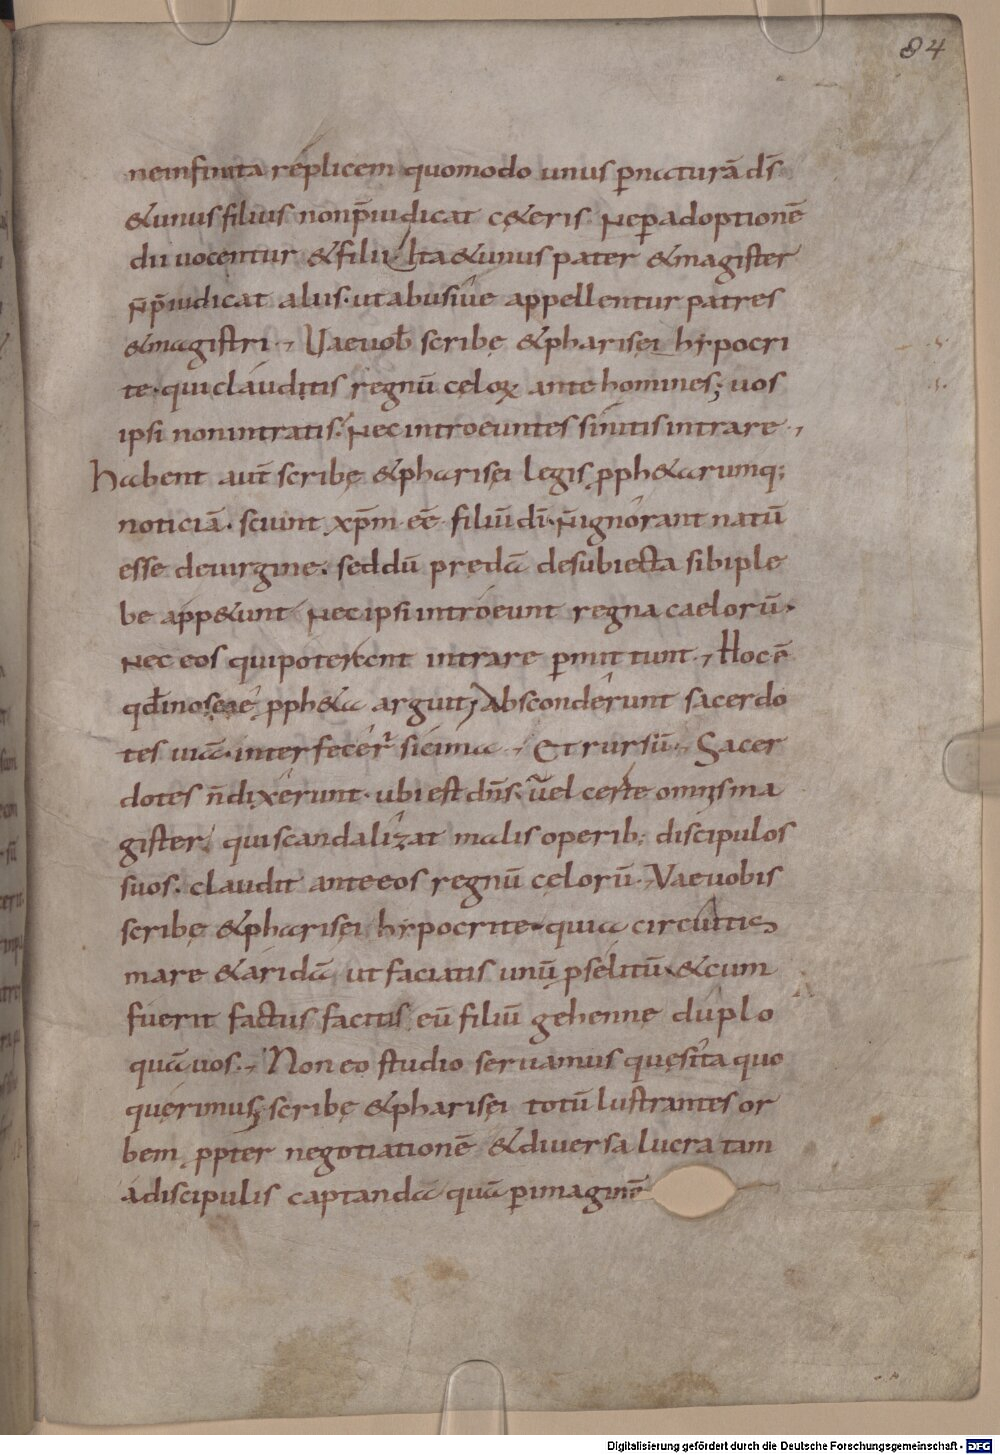 84
neinfinita replicem quomodo unus p̲naturā ds̄
&unusfilius nonp̄iudicat c&eris Nep̲adoptionē
dii uocentur &filii Ita&unus pater &magister
N̄p̄iudicat aliis· utabusiue appellentur patres
&magistri·, Uaeuob̄ scribę &pharisęi hypocri
te· quiclauditis regnū cęloꝝ ante homines; uos
ipsi nonintratis· Necintroeuntes sinitisintrare·,
Habent aut̄ scribę &pharisęi legis ꝓph&arumq;
noticiā· sciunt xp̄m eē filiū dī· N̄ignorant natū
esse deuirgine· seddū prędā desubiecta sibiple
be app&unt Necipsiintroeunt regna caelorū·
Nec eos quipoterant intrare p̲mittunt·, Hoc ē
qd̄inoseae ꝓph&a arguit; Absconderunt sacerdo
tes uiā· interfecer̄ sicima·, Et rursū·, Sacer
dotes n̄dixerunt· ubi est dn̄s· Uel certe omnisma
gister quiscandalizat malis operib; discipulos
suos· claudit anteeos regnū cęlorū·, Vaeuobis
scribę &pharisęi hypocrite· quia circuitis
mare &aridā ut faciatis unū ꝓselitū &cum
fuerit factus facitis eū filiū gehennę duplo
quāuos·, Non eo studio seruamus quęsita quo
quęrimus; scribę &pharisęi totū lustrantes or
bem ꝓpter negotiationē &diuersa lucra tam
adiscipulis captandā quā p̲imaginē
Digitalisierung gefördert durch die Deutsche Forschungsgemeinschaft - DFG